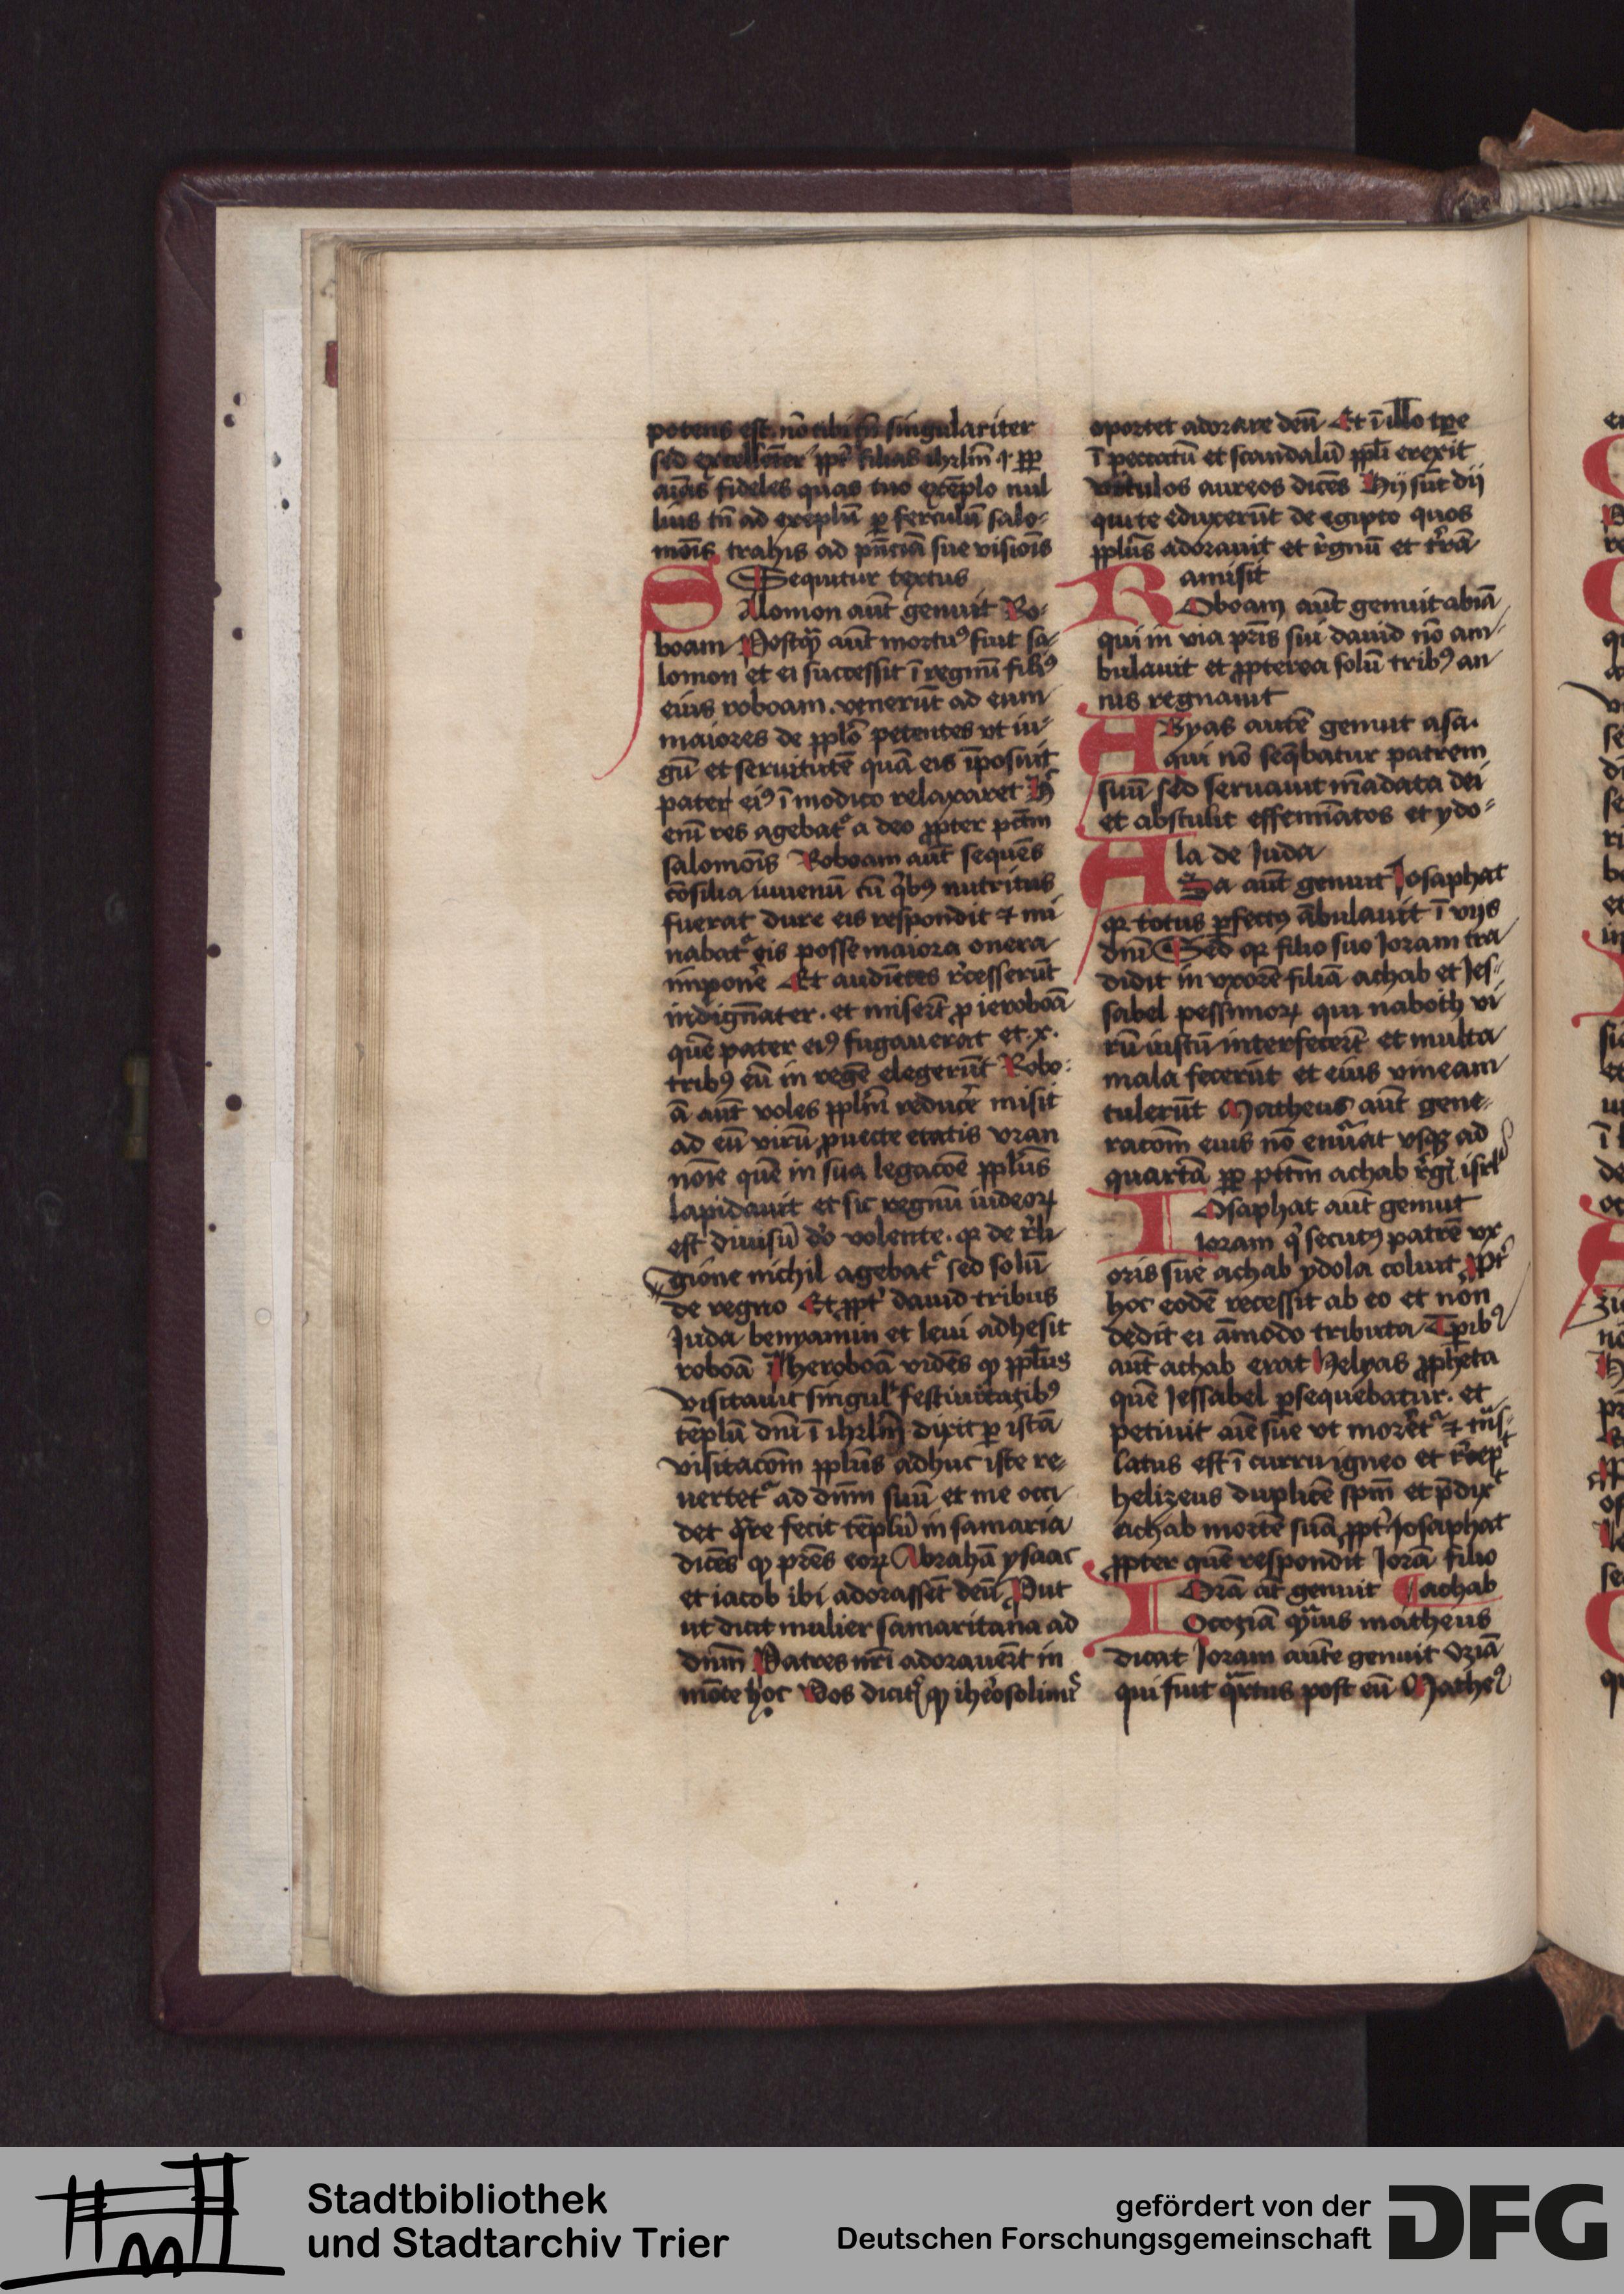 potens est nō tibi tm̄ singulariter
sed excellēter ꝓpt̓ filias ihrlm̄ ⁊ ꝓꝑ
aīas fideles quas tuo exēplo nul
lius tn̄ ad exeplū ꝑ ferculū salo-
mōis trahis ad pn̄ciā sue visiōis
Sequitur textus
Salomon aūt genuit Ro-
boam Postꝙ̄ aūt mortuꝰ fuit sa-
lomon et ei successit ī regnū filiꝰ
eius roboam. venerūt ad eum
maiores de ppl̄o petentes vt iu-
gū et seruitutē quā eis īposuit
pater eiꝰ ī modico relaxaret H̓
enī res agebat᷑ a deo ꝓpter pctm̄
salomōis Roboam aūt sequēs
cōsilia iuuenū cū qͥbꝰ nutritus
fuerat dure eis respondit ⁊ mi
nabat᷑ eis posse maiora onera
imponē Et audiētes r̓cesserūt
indign̄ater. et miserūt ꝓ ieroboā
quē pater eiꝰ fugauerat et .x.
tribꝰ eū in regē elegerūt Robo-
ā aūt voles ppl̄m reducē misit
ad eū virū ꝓuecte etatis vran
noīe quē in sua legacōe ppl̄us
lapidauit et sic regnū iudeoꝝ
est diuisū d̓o volente. qꝛ de r̓li
gione nichil agebat᷑ sed solū
de regno Et ꝓpt̓ dauid tribus
Juda benyamin et leui adhesit
roboā Iheroboā vidēs ꝙ ppl̄us
visitauit singul̓ festiuitatibꝰ
tēplū dn̄i ī ihrlm̄ dixit ꝑ istā
visitacōm ppl̄us adhuc iste re-
uertet᷑ ad dn̄m suū et me occi
det qͣre fecit tēplū in samaria
dicēs ꝙ pr̄es eoꝝ Abrahā ysaac
et iacob ibi adorassēt deū Vnt
ut dicit mulier samaritana ad
dn̄m Patres nr̄i adorauēt in
mōte hoc Vos dicit᷑ ꝙ iherosolimis
oportet adorare deū Et ī illo tꝑe
ī peccatū et scandalū ppl̄i erexit
vitulos aureos dicēs Hij sūt dij
qui te eduxerūt de egipto quos
ppl̄us adorauit et r̓gnū et t̓rā
amisit
Roboam aūt genuit abiā
qui in via pr̄is sui dauid nō am-
bulauit et ꝓpterea solū tribꝰ an
nis regnauit
AByas autē genuit asa.
qui nō seq̄batur patrem
suū sed seruauit mādata dei
et abstulit effeminatos et ydo-
la de Juda
ASa aūt genuit Josaphat
qꝛ totus ꝑfectꝰ ābulauit ī vijs
dn̄i Sed qꝛ filio suo Joram tra
didit in vxorē filiā achab et Jes-
sabel pessimoꝝ qui naboth vi
rū iustū interfecerūt et multa
mala fecerūt et eius vineam
tulerūt Matheus aūt gene-
racōm eius nō enūat vsqꝫ ad
quartā ꝓꝑ pctm̄ achab r̓gꝭ isrl̓
IOsaphat aūt genuit
Joram qͥ secutꝰ patrē vx
oris sue achab ydola coluit ꝓpt̓
hoc eodē recessit ab eo et non
dedit ei āmodo tributa Tꝑibꝰ
aūt achab erat Helyas ꝓpheta
quē Jessabel ꝑsequebatur. et
petiuit aīe sue vt moret᷑ ⁊ tn̄s-
latus est ī curru igneo et r̓cep
helizeus duplicē spm̄ et p̄dix
achab mortē suā ꝓpt̓ Josaphat
ꝓpter quē respondit Jorā filio
IOrā āt genuit achab
Ocoziā qͣuis matheus
dicat Joram aūte genuit Oziā
qui fuit qͣrtus post eū Matheꝰ
Stadtbibliothek
und Stadtarchiv Trier
gefördert von der
Deutschen Forschungsgemeinschaft
DFG